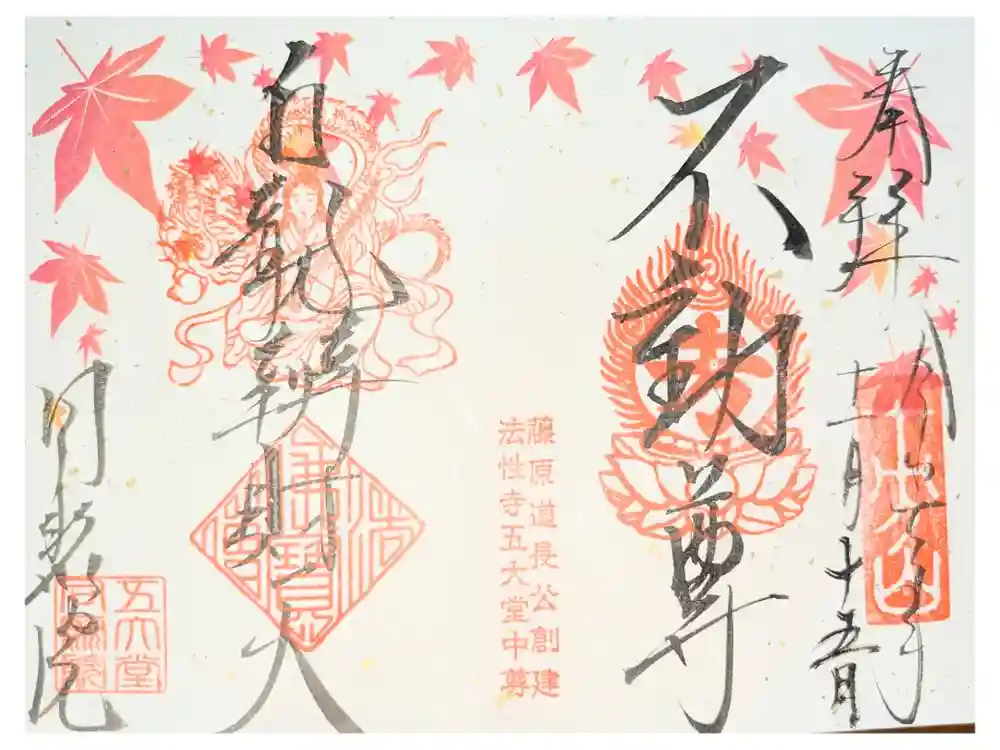 奉拝
十一月十五日
不動尊
藤原道長公創建
法性寺五大堂中尊
白龍辨財天
同聚院
五大堂
同聚院